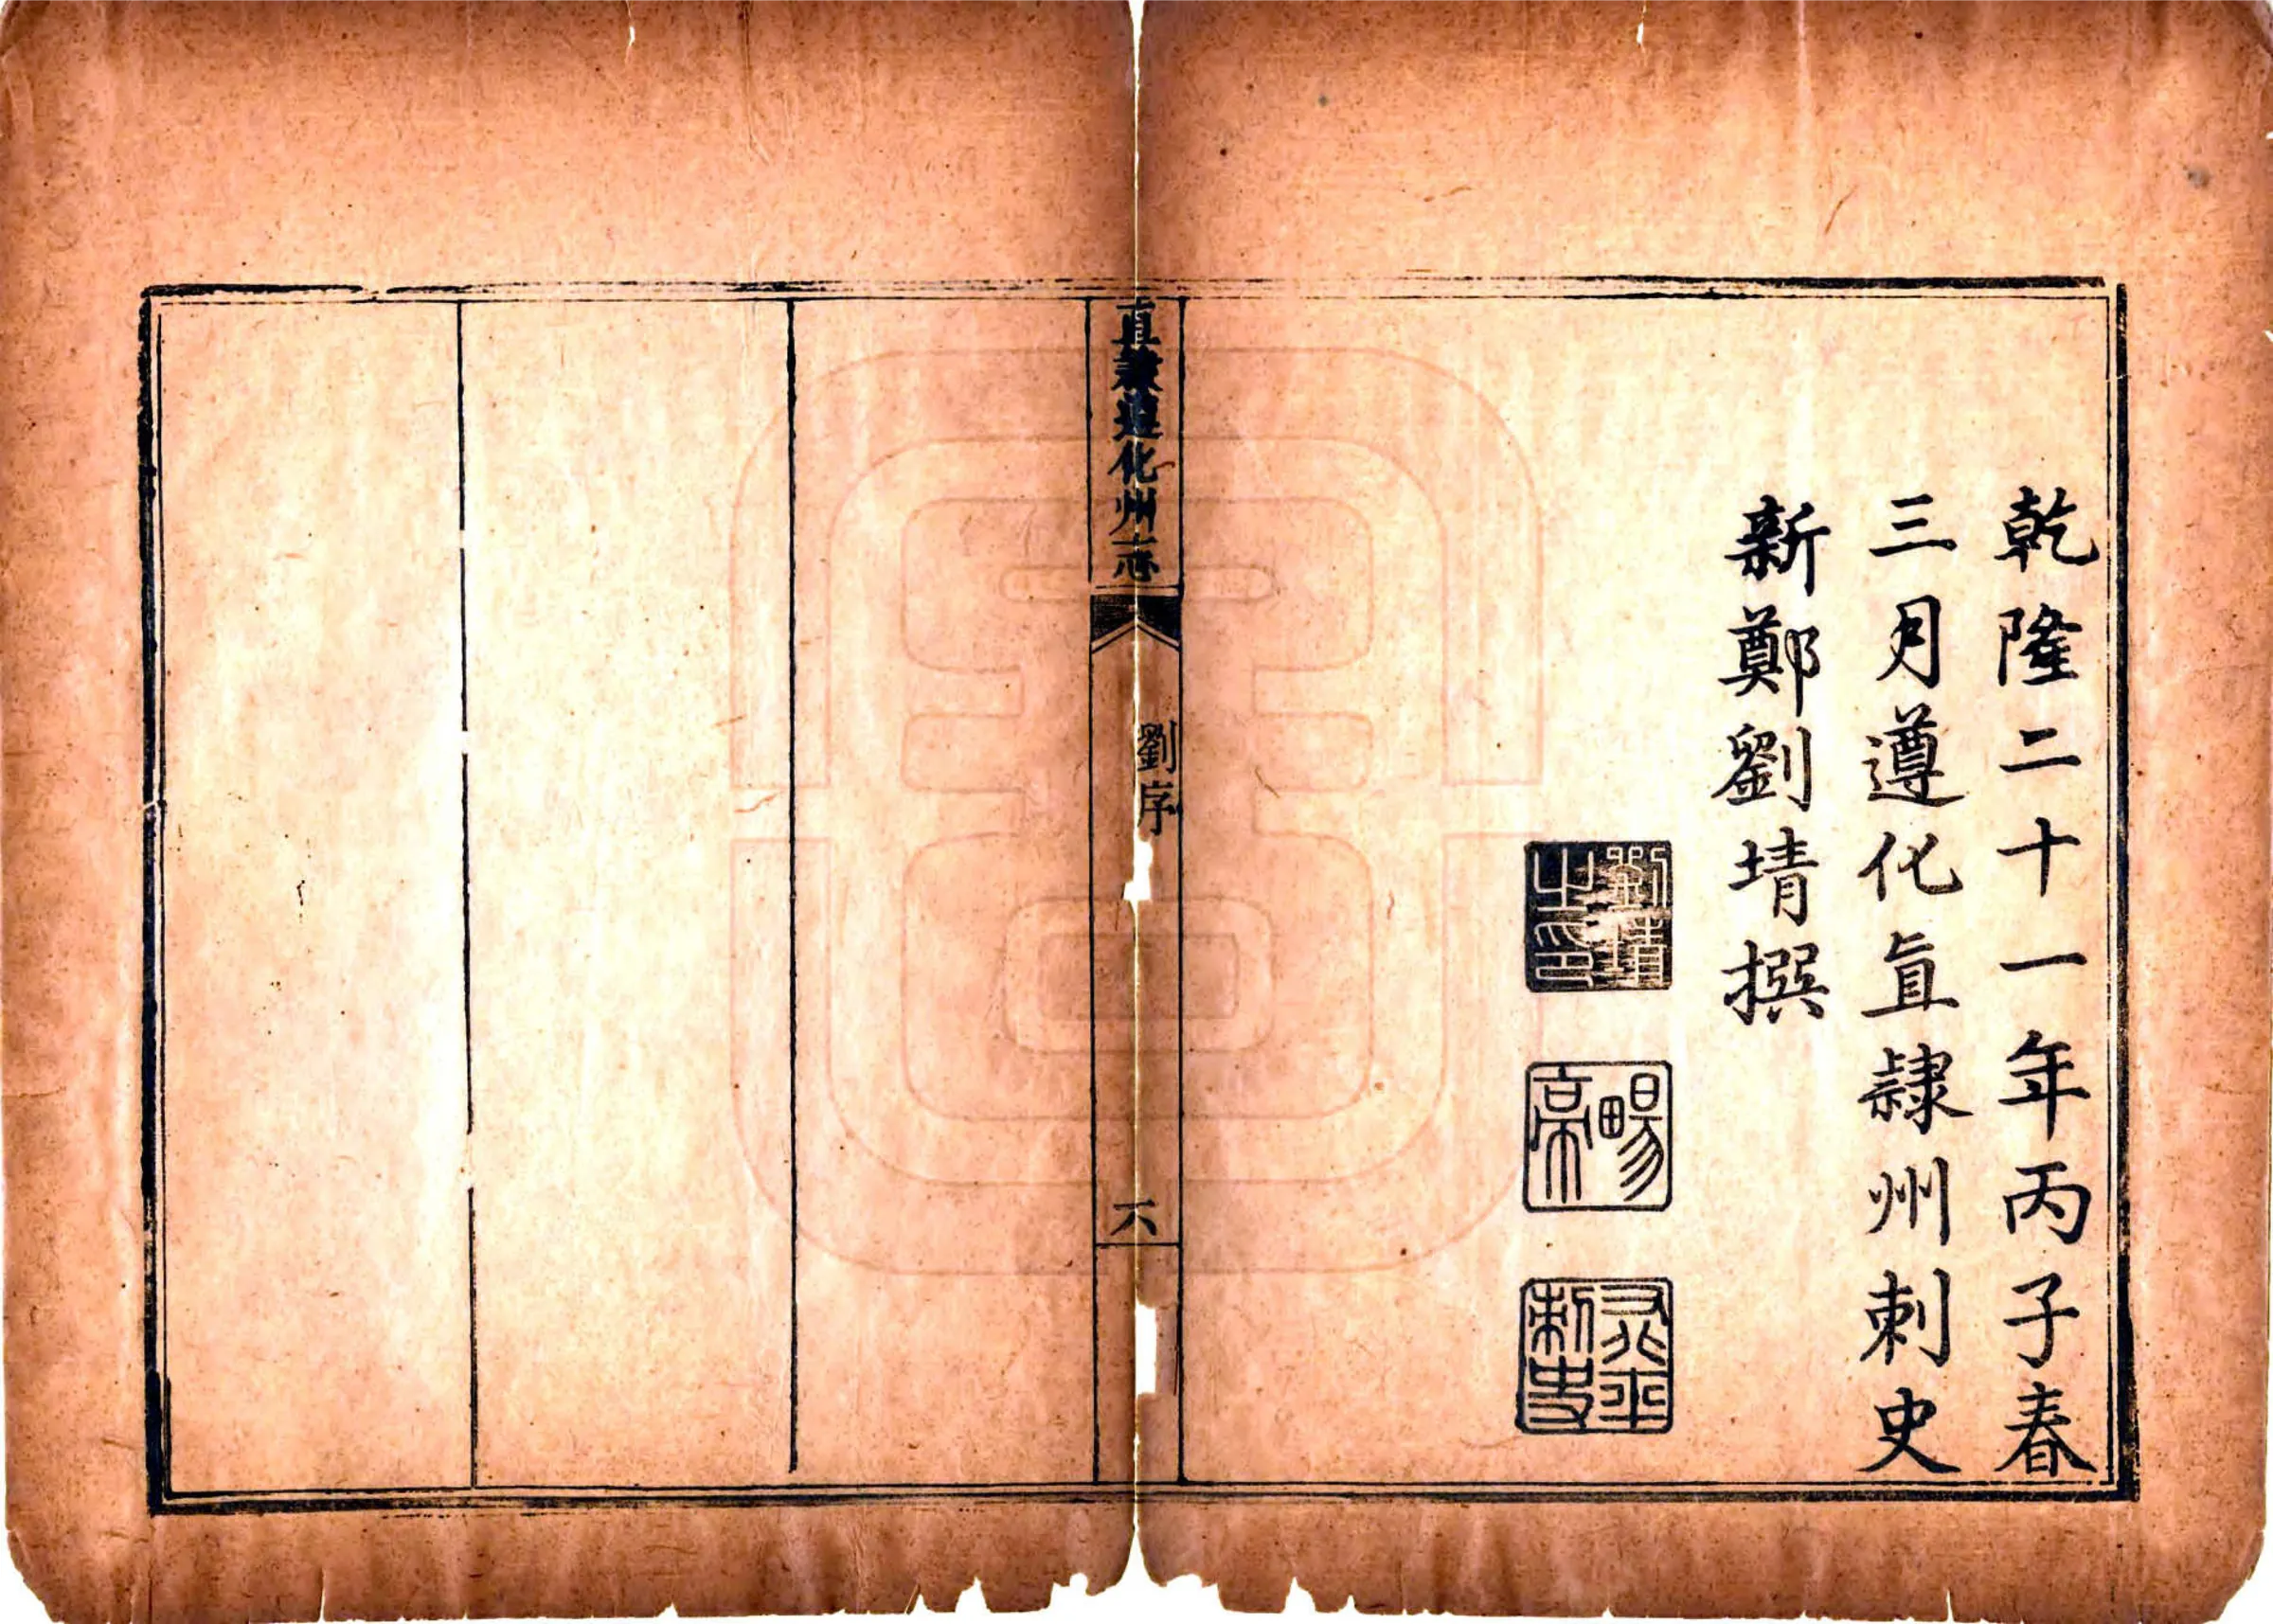 乾隆二十一年丙子春
三月遵化直隸州刺史
新鄭劉埥撰
劉埥之印
暢亭
刺史
直隸遵化州志
劉序
六